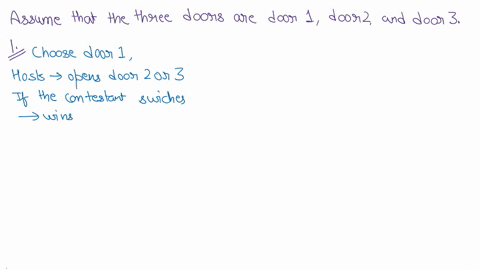 Assume that the three doors are door 1, door2, and door 3.
1. Choose door 1,
Hosts → opens door 2 or 3
If the contestant swiches
→ wins